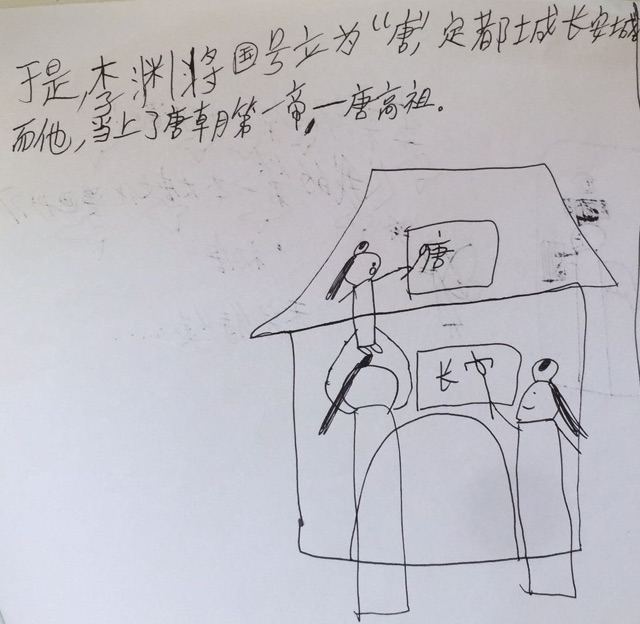 于是,李渊将国号立为“唐”,定都土成长安城
而他,当上了唐朝第一帝,一唐高祖。
唐
长安